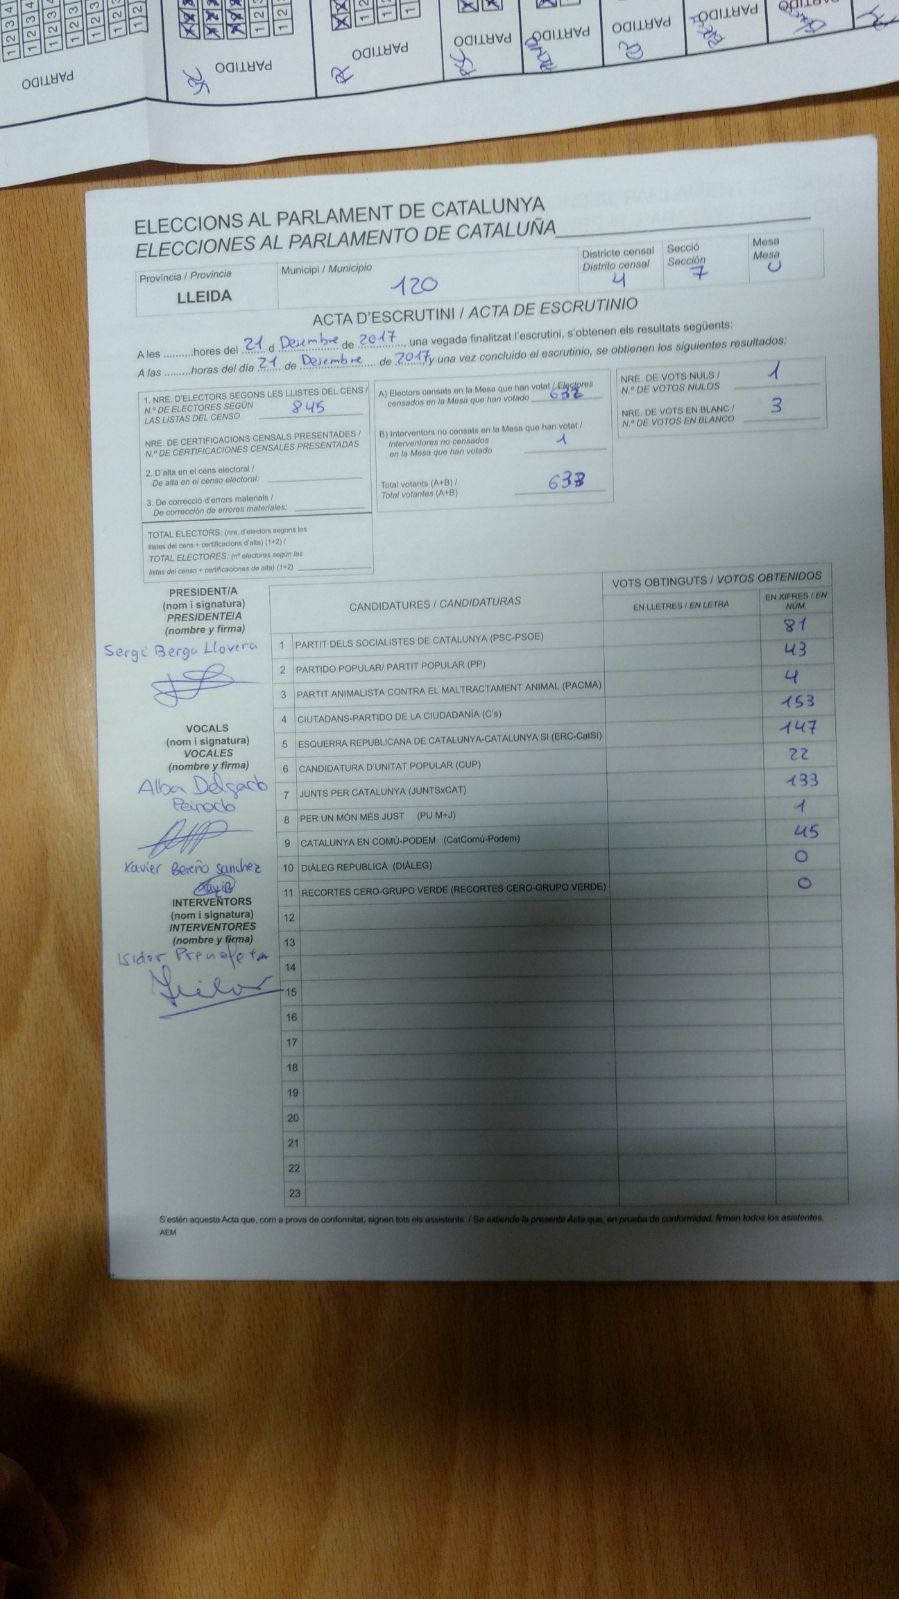 PARTIDO PARTIDO PARTIDO PARTIDO PARTIDO PARTIDO PARTIDO
ELECCIONS AL PARLAMENT DE CATALUNYA
ELECCIONES AL PARLAMENTO DE CATALUÑA
Província / Provincia
LLEIDA
Municipi / Municipio
120
Districte censal
Distrito censal
4
Secció
Sección
7
Mesa
Mesa
U
ACTA D'ESCRUTINI / ACTA DE ESCRUTINIO
A les ..........hores del 21 d Desembre de 2017, una vegada finalitzat l'escrutini, s'obtenen els resultats següents:
A las .........horas del día 21 de Desembre de 2017, y una vez concluido el escrutinio, se obtienen los siguientes resultados:
1. NRE. D'ELECTORS SEGONS LES LLISTES DEL CENS /
N.º DE ELECTORES SEGÚN
LAS LISTAS DEL CENSO 845
NRE. DE CERTIFICACIONS CENSALS PRESENTADES /
N.º DE CERTIFICACIONES CENSALES PRESENTADAS
2. D'alta en el cens electoral /
De alta en el censo electoral:
3. De correcció d'errors materials /
De corrección de errores materiales:
TOTAL ELECTORS: (nre. d'electors segons les
llistes del cens + certificacions d'alta) (1+2) /
TOTAL ELECTORES: (nº electores según las
listas del censo + certificaciones de alta) (1+2)
A) Electors censats en la Mesa que han votat / Electores
censados en la Mesa que han votado 632
B) Interventors no censats en la Mesa que han votat /
Interventores no censados
en la Mesa que han votado 1
Total votants (A+B) /
Total votantes (A+B) 633
NRE. DE VOTS NULS /
N.º DE VOTOS NULOS 1
NRE. DE VOTS EN BLANC /
N.º DE VOTOS EN BLANCO 3
PRESIDENT/A
(nom i signatura)
PRESIDENTE/A
(nombre y firma)
Sergi Berga Llovera
VOCALS
(nom i signatura)
VOCALES
(nombre y firma)
Alba Delgado
Peinado
Xavier Bereño Sanchez
INTERVENTORS
(nom i signatura)
INTERVENTORES
(nombre y firma)
Isidor Prenafeta
CANDIDATURES / CANDIDATURAS
VOTS OBTINGUTS / VOTOS OBTENIDOS
EN LLETRES / EN LETRA
EN XIFRES / EN NÚM.
1 PARTIT DELS SOCIALISTES DE CATALUNYA (PSC-PSOE) 81
2 PARTIDO POPULAR/ PARTIT POPULAR (PP) 43
3 PARTIT ANIMALISTA CONTRA EL MALTRACTAMENT ANIMAL (PACMA) 4
4 CIUTADANS-PARTIDO DE LA CIUDADANÍA (C's) 153
5 ESQUERRA REPUBLICANA DE CATALUNYA-CATALUNYA SÍ (ERC-CatSí) 147
6 CANDIDATURA D'UNITAT POPULAR (CUP) 22
7 JUNTS PER CATALUNYA (JUNTSxCAT) 133
8 PER UN MÓN MÉS JUST (PU M+J) 1
9 CATALUNYA EN COMÚ-PODEM (CatComú-Podem) 45
10 DIÀLEG REPUBLICÀ (DIÀLEG) 0
11 RECORTES CERO-GRUPO VERDE (RECORTES CERO-GRUPO VERDE) 0
12
13
14
15
16
17
18
19
20
21
22
23
S'estén aquesta Acta que, com a prova de conformitat, signen tots els assistents. / Se extiende la presente Acta que, en prueba de conformidad, firman todos los asistentes.
AEM